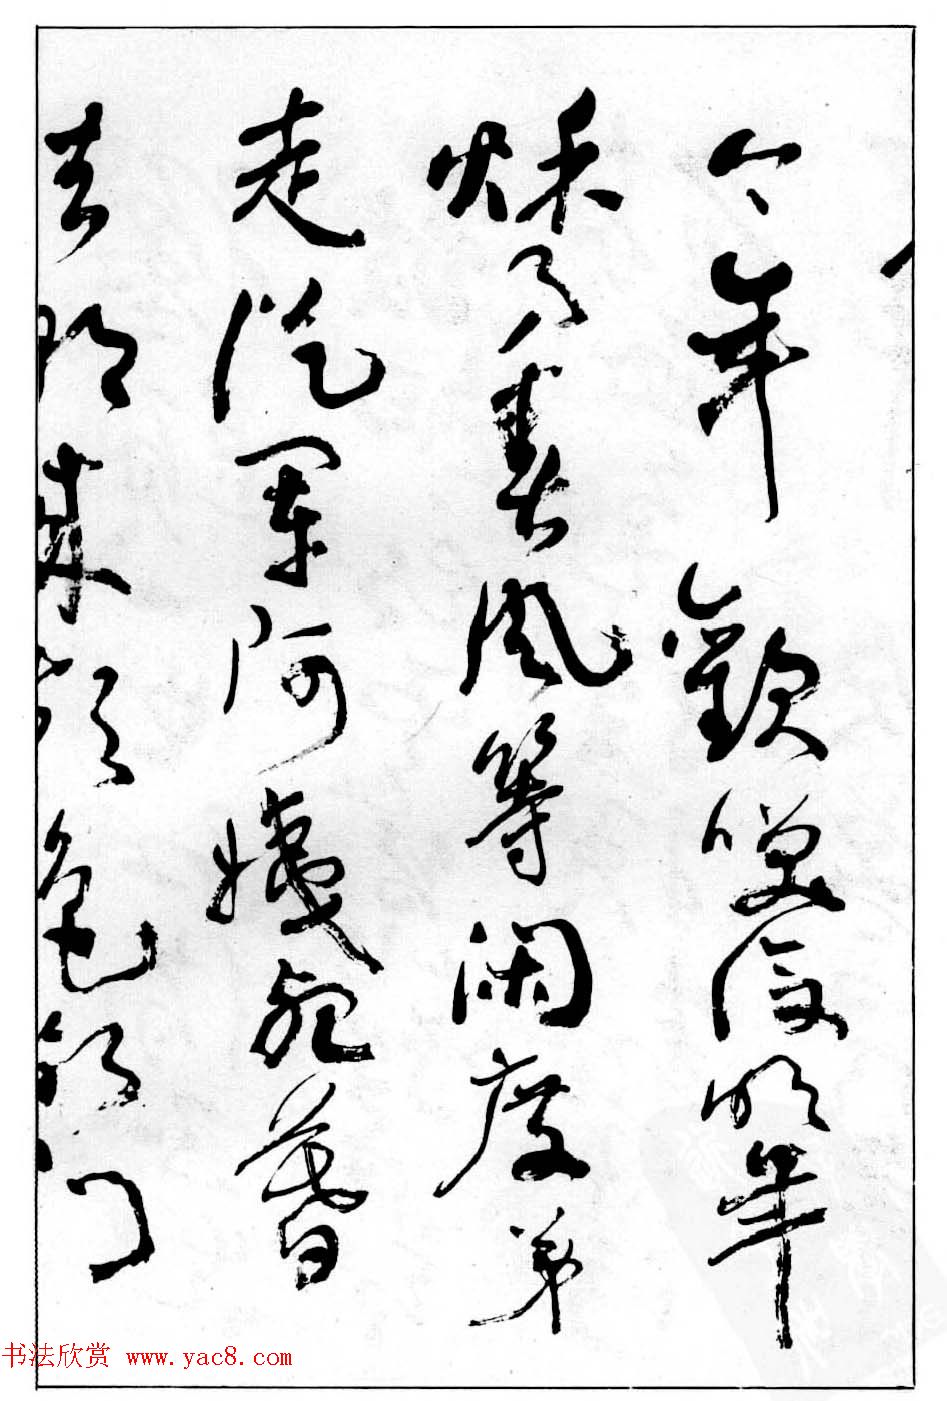 今年歡笑復明年
秋月春風等閑度弟
走從軍阿姨死暮
去朝来顏色故門
书法欣赏 www.yac8.com